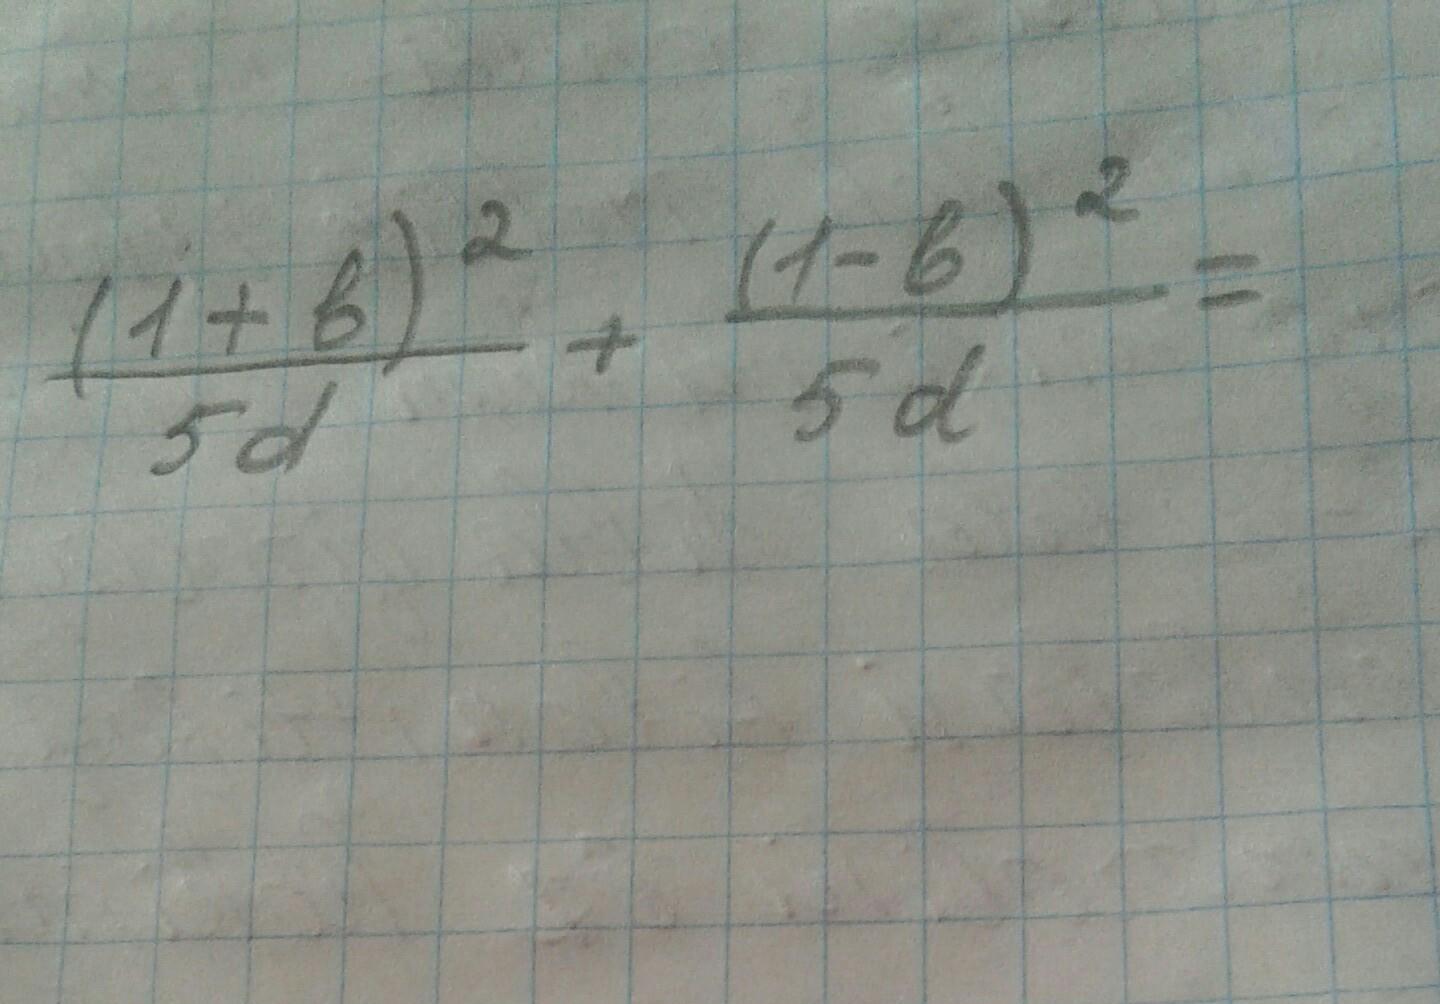 (1+b)²/5d + (1-b)²/5d =